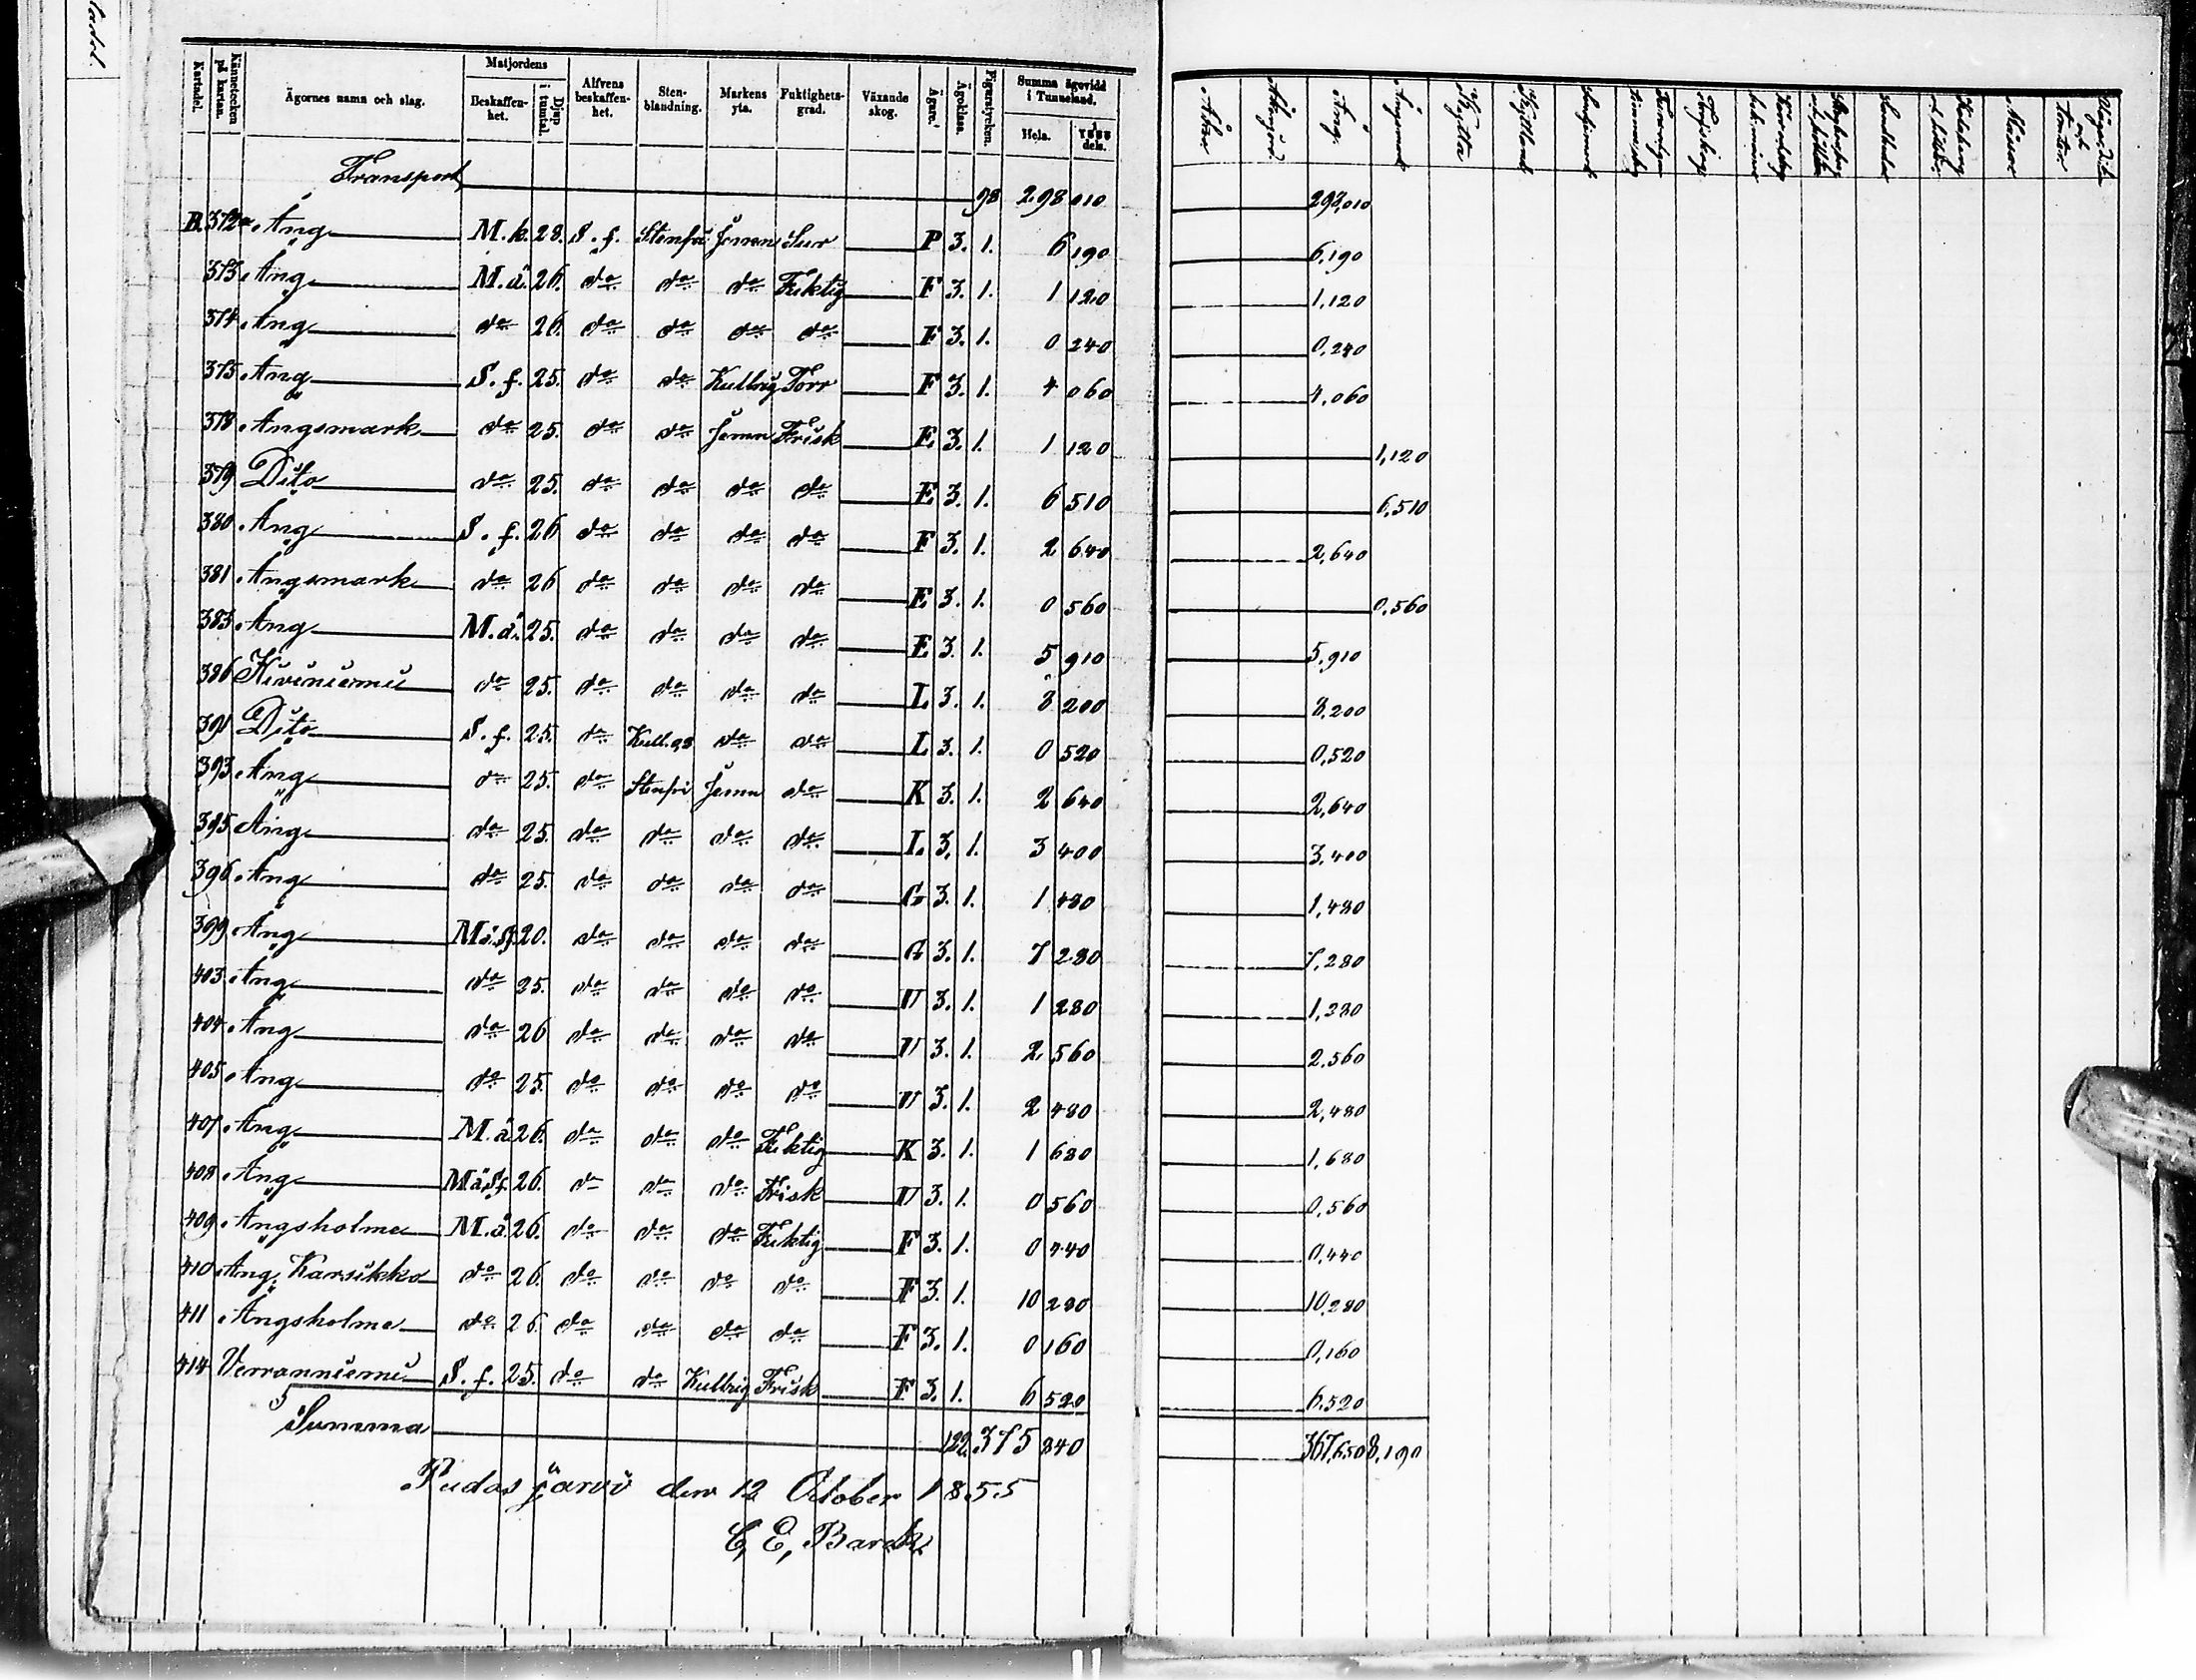 Kartndel. Kännetecken på kartan. Ägornes namn och slag. Matjordens Beskaffenhet. Djup i tumtal. Alfvens beskaffenhet. Stenblandning. Markens yta. Fuktighetsgrad. Växande skog. Ägare. Ägoklass. Figurstycken. Summa ägovidd i Tunneland. Hela. 1/1000 dels. Åker Åbrgård Äng. Ängsmark Kytta Kyttland
Transport 98 298 010 298,010
B. 372a Äng M.k. 28. S.f. Stenfri Jemn Sur P 3. 1. 6 190 6,190
373 Äng M.ä. 26. do do do Fuktig F 3. 1. 1 120 1,120
374 Äng do 26. do do do do F 3. 1. 0 240 0,240
375 Äng S.f. 25. do do Kullrig Torr F 3. 1. 4 060 4,060
378 Ängsmark do 25. do do Jemn Frisk E 3. 1. 1 120 1,120
379 Dito do 25. do do do do E 3. 1. 6 510 6,510
380 Äng S.f. 26 do do do do F 3. 1. 2 640 2,640
381 Ängsmark do 26 do do do do E 3. 1. 0 560 0,560
383 Äng M.ä. 25. do do do do E 3. 1. 5 910 5,910
386 Kiviniemi do 25. do do do do L 3. 1. 8 200 8,200
391 Dito S.f. 25. do do do L 3. 1. 0 520 0,520
393 Äng do 25. do Stenfri Jemn do K 3. 1. 2 640 2,640
395 Äng do 25. do do do do L. 3. 1. 3 400 3,400
396 Äng do 25. do do do do G 3. 1. 1 480 1,480
399 Äng M.ä.S.f. 20. do do do do A 3. 1. 7 280 7,280
403 Äng do 25. do do do do U 3. 1. 1 280 1,280
404 Äng do 26 do do do do U 3. 1. 2 560 2,560
405 Äng do 25. do do do do U 3. 1. 2 480 2,480
407 Äng M.ä 26. do do do Fuktig K 3. 1. 1 680 1,680
408 Äng M.ä.S.f. 26. do do do Frisk U 3. 1. 0 560 0,560
409 Ängsholme M.ä. 26. do do do Fuktig F 3. 1. 0 440 0,440
410 Äng, Karsikko do 26. do do do do F 3. 1. 10 280 10,280
411 Ängsholme do 26. do do do do F 3. 1. 0 160 0,160
414 Verranniemi S.f. 25. do do Kullrig Frisk F 3. 1. 6 520 6,520
Summa 122. 375 840 367,650 8,190
Pudasjärvi den 12 October 1855
C, E, Barck